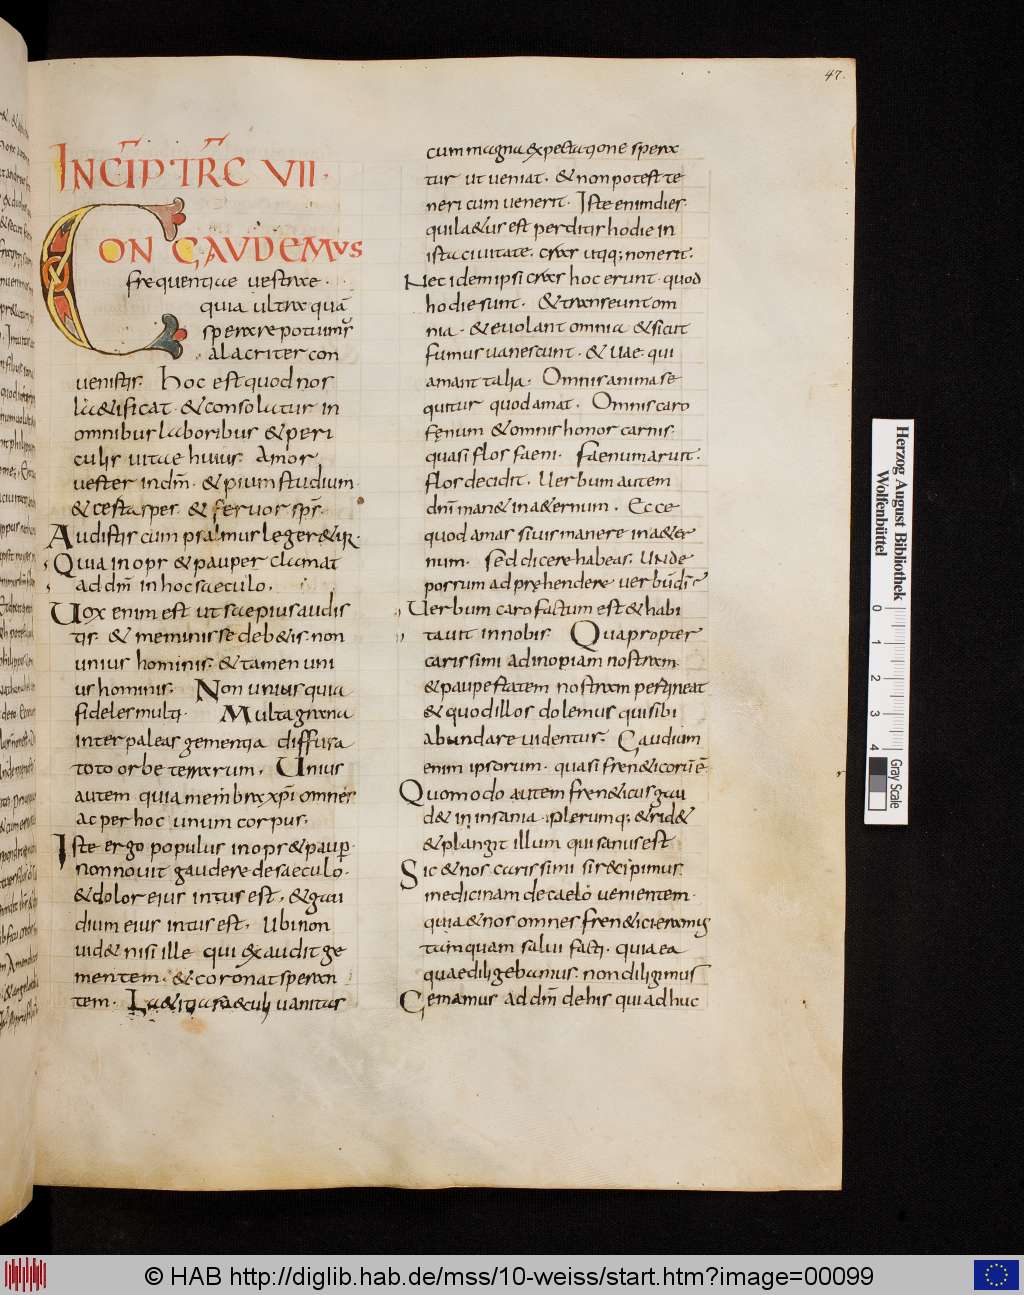 47.
INCĪP TR̄C VII.
CON GAUDEMUS
frequentiae vestrae.
quia ultra quā
sperare potuimꝰ
alacriter con
venistis. Hoc est quod nos
lae&ificat. & consolatur in
omnibus laboribus & peri
culis vitae huius. Amor
vester in dm̄. & pium studium
& certa spes. & fervor sps̄.
Audistis cum psalmus leger&ur.
Quia inops & pauper clamat
ad dm̄ in hoc saeculo.
Vox enim est ut saepius audis
tis. & meminisse deb&is. non
unius hominis. & tamen uni
us hominis. Non unius quia
fideles multi. Multa grana
inter paleas gementia diffusa
toto orbe terrarum. Unius
autem quia membra xpi omnes
ac per hoc unum corpus.
Iste ergo populus inops & paup̱.
non novit gaudere de saeculo.
& dolor eius intus est. & gau
dium eius intus est. Ubi non
vid& nisi ille qui exaudit ge
mentem. & coronat speran
tem. La&itia saeculi vanitas
cum magna expectatione spera
tur ut veniat. & non potest te
neri cum venerit. Iste enim dies
qui la&us est perditis hodie in
ista civitate. cras utiq; non erit.
Nec idem ipsi cras hoc erunt quod
hodie sunt. & transeunt om
nia. & evolant omnia & sicut
fumus vanescunt. & vae qui
amant talia. Omnis anima se
quitur quod amat. Omnis caro
fęnum & omnis honor carnis.
quasi flos faeni. Faenum aruit.
flos decidit. Verbum autem
dn̄i man& in a&ernum. Ecce
quod amas si vis manere in a&er
num. Sed dicere habeas. Unde
possum adpręhendere verbū dī
Verbum caro factum est & habi
tavit in nobis. Quapropter
carissimi ad inopiam nostram
& paupertatem nostram pertineat
& quod illos dolemus qui sibi
abundare videntur. Gaudium
enim ipsorum. quasi fren&icorū ē
Quomodo autem fren&icus gau
d& in insania. plerumq; & rid&
& plangit illum qui sanus est
Sic & nos carissimi si recipimus
medicinam de caelo venientem
quia & nos omnes fren&ici eramus
tamquam salvi facti. quia ea
quae diligebamus. non diligimus
Gemamus ad dm̄ de his qui adhuc
Herzog August Bibliothek
Wolfenbüttel
0 1 2 3 4
Gray Scale
© HAB http://diglib.hab.de/mss/10-weiss/start.htm?image=00099